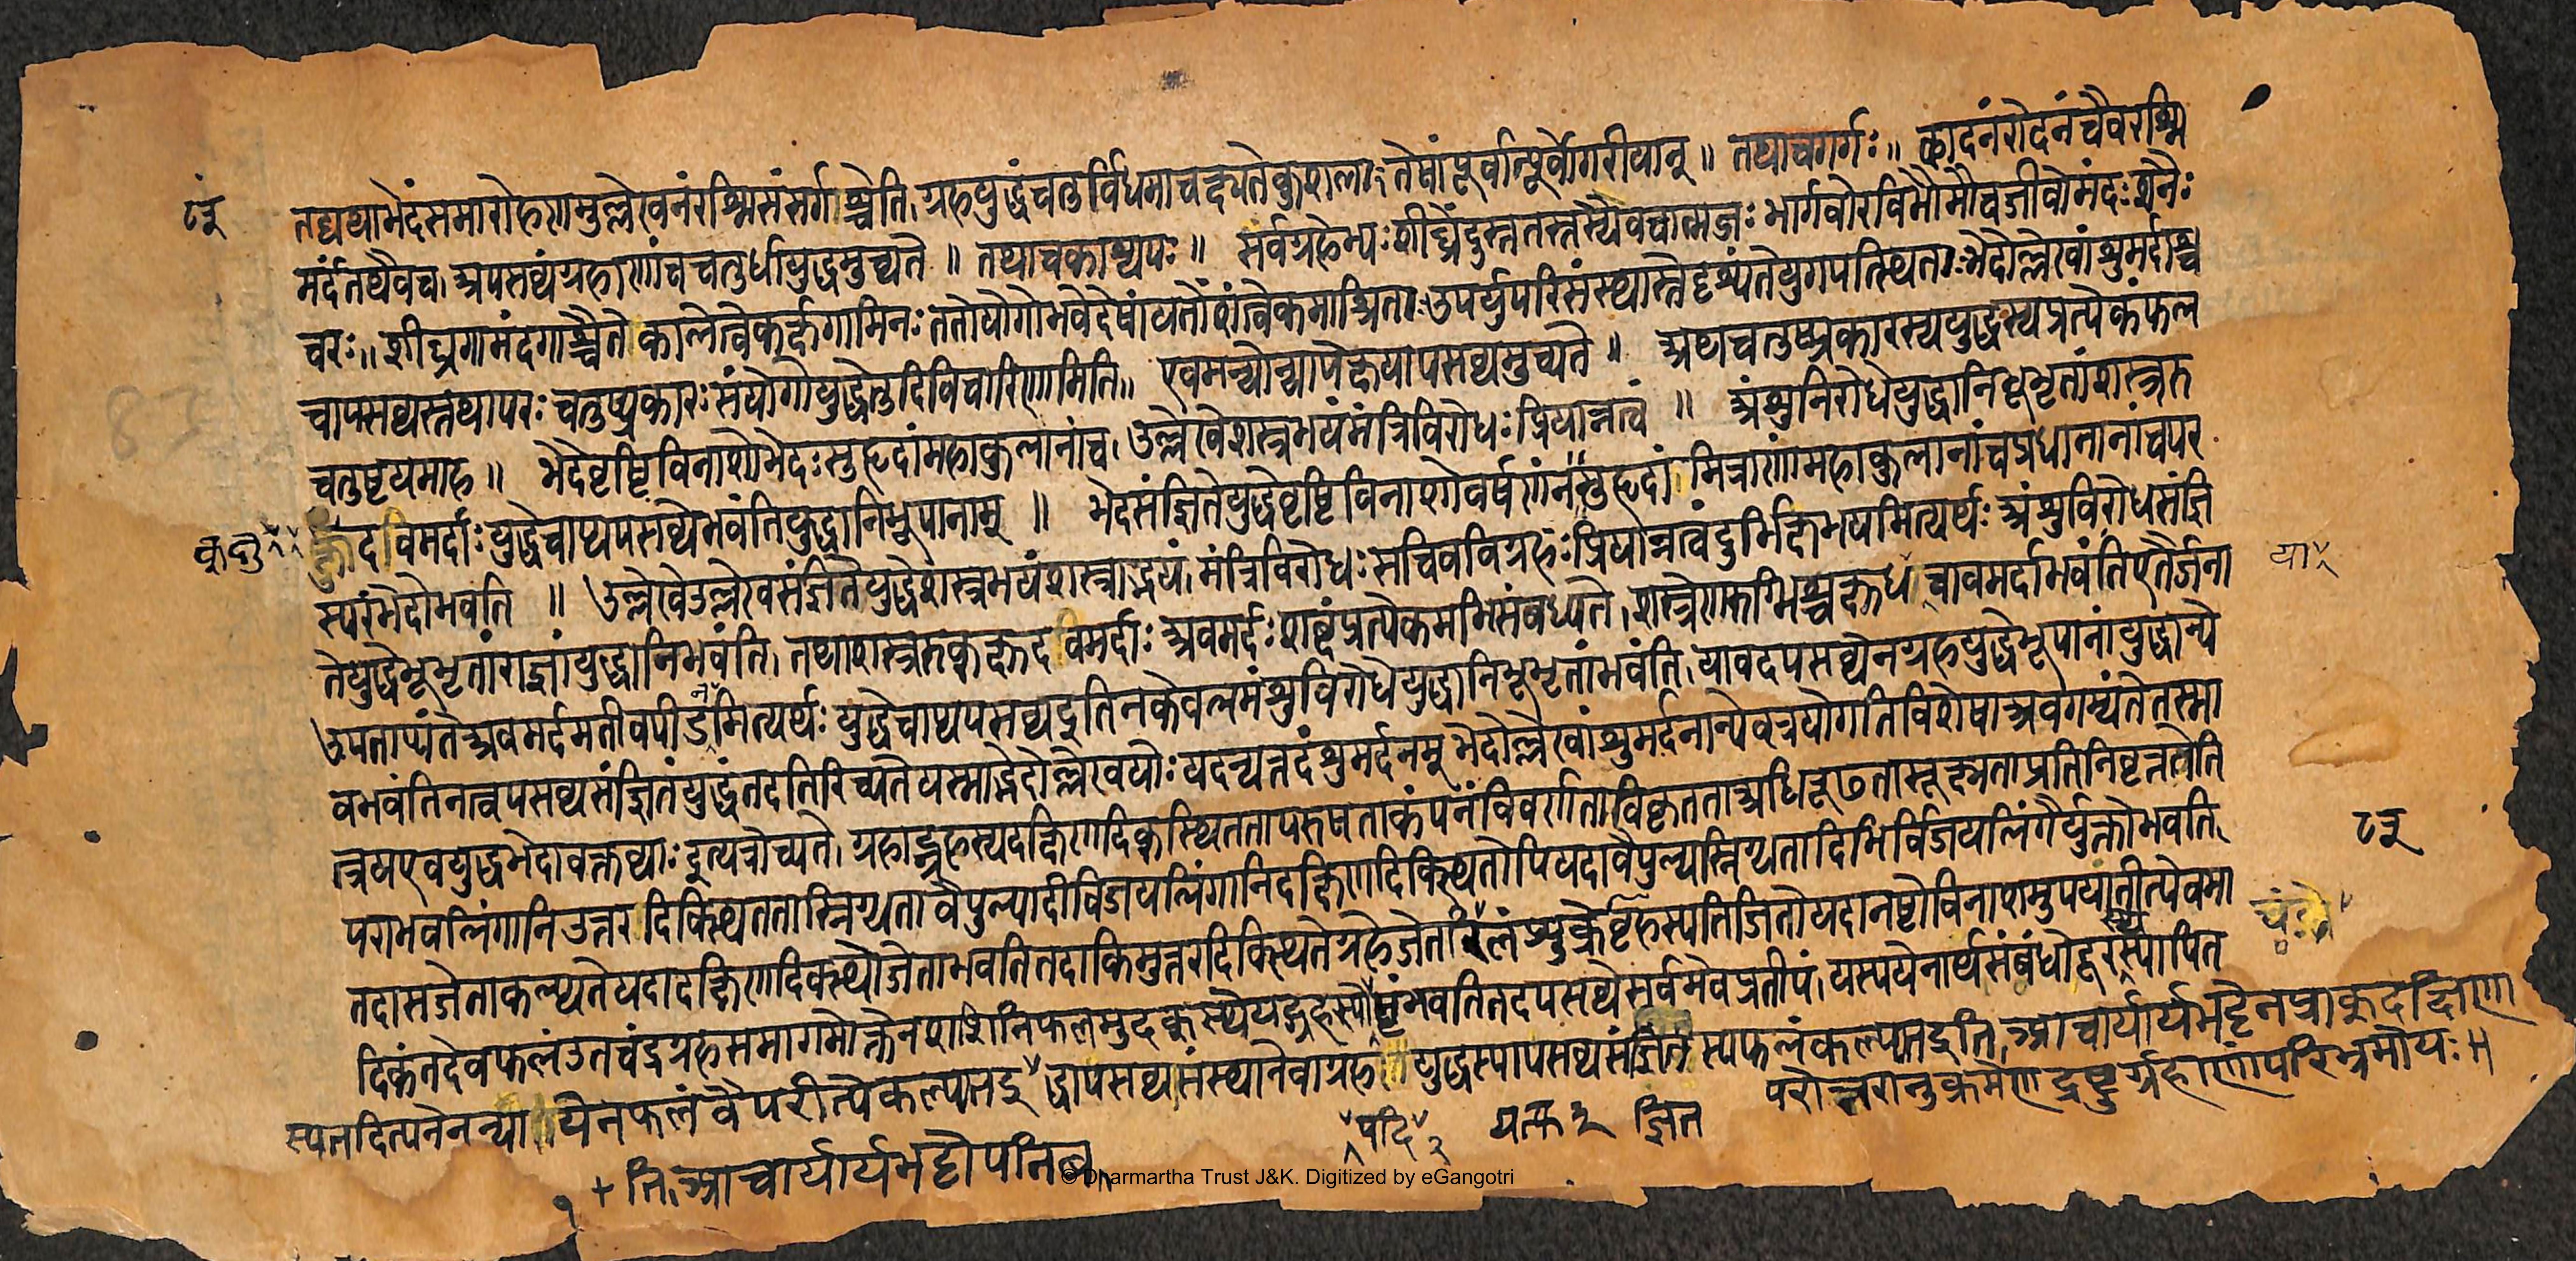 ८३
तद्यथाभेदंसमारोहणमुल्लेखनंरश्मिसंसर्गाश्चेति।ग्रहयुद्धंचतुर्विधमाचक्ष्यतेकुशलाःतेषांपूर्वात्पूर्वोगरीयान् ॥ तथाचगर्गः॥ छादनंरोदनंचैवरश्मि
मर्दंतथैवच।अपसव्यंग्रहाणांचचतुर्धायुद्धमुच्यते ॥ तथाचकाश्यपः ॥ सर्वग्रहेभ्यःशीघ्रेंदुस्ततस्तस्यैवचात्मजः भार्गवोरविभौमौचजीवोमंदःशनैः
चरः॥ शीघ्रगामंदगाश्चैते कालेत्वेकर्क्षगामिनः ततोयोगोभवेदेषांयतोंशांत्वेकमाश्रिताःउपर्युपरिसंस्थास्तेदृश्यंतेयुगपत्स्थिताःभेदोल्लेखांशुमर्दाश्च
चापसव्यस्तथापरः चतुष्प्रकारःसंयोगोयुद्धेतुदिविचारिणामिति॥ एवमन्योन्यापेक्षयापसव्यमुच्यते ॥ अथचतुष्प्रकारस्ययुद्धस्यप्रत्येकंफल
चतुष्टयमाह ॥ भेदेवृष्टिविनाशोभेदःसुहृदांमहाकुलानांच।उल्लेखेशस्त्रभयंमंत्रिविरोधःप्रियान्नत्वं ॥ अंशुनिरोधेयुद्धानिभूभृतांशस्त्ररु
क्षुदविमर्दाः युद्धेचाप्यपसव्येभवंतियुद्धानिभूपानाम् ॥ भेदसंज्ञितेयुद्धेवृष्टिविनाशोवर्षणंन सुहृदां मित्राणांमहाकुलानांचप्रधानानांचपर
स्परंभेदोभवति ॥ उल्लेखेउल्लेखसंज्ञितेयुद्धेशस्त्रभयंशस्त्राद्भयं।मंत्रिविरोधःसचिवविग्रहःप्रियान्नत्वंदुर्भिक्षभयमित्यर्थः अंशुविरोधसंज्ञि
या
तेयुद्धेभूभृतांराज्ञांयुद्धानिभवंति।तथाशस्त्ररुक्क्षुदविमर्दाः अवमर्दःशब्दंप्रत्येकमभिसंबध्यते।शस्त्रेणरुग्भिश्चक्षुधाचावमर्दाभवंतिएतैर्जना
उपताप्यंतेअवमर्दमतीवपीडनमित्यर्थः युद्धेचाप्यपसव्यइतिनकेवलमंशुविरोधेयुद्धानिभूभृतांभवंति।यावदपसव्येनग्रहयुद्धेभूपानांयुद्धान्ये
वभवंतिनत्वपसव्यसंज्ञितंयुद्धंतदतिरिच्यतेयस्माद्भेदोल्लेखयोः यदन्यत्तदंशुमर्दनम् भेदोल्लेखांशुमर्दनान्येवत्रयोगतिविशेषाअवगम्यंतेतस्मा
त्त्रयएवयुद्धभेदावक्तव्याः इत्यत्रोच्यते।ग्रहाद्ग्रहस्यदक्षिणदिक्स्थिततापरुषताकंपनंविवर्णताविकृतताअधिरूढतासूक्ष्मताप्रतिनिवृत्तत्वेति
पराभवलिंगानिउत्तर दिक्स्थिततास्निग्धता वैपुल्यादीविजयलिंगानिदक्षिणदिक्स्थितोपियदावैपुल्यस्निग्धतादिभिर्विजयलिंगैर्युक्तोभवति।
८३
तदासजेताकल्प्यतेयदादक्षिणदिक्स्थोजेताभवतितदाकिमुत्तरदिक्स्थितेग्रहेजेता शुक्रेबृहस्पतिजितोयदानष्टोविनाशमुपयातीत्येवमा
दिकंतदेवफलंउतचंद्रग्रहसमागमोक्तेनशशिनिफलमुदक्स्थेयद्ग्रहस्यो भवतितदपसव्येसर्वमेवप्रतीपं।यस्ययेनार्थसंबंधोदूरस्थस्यापित
स्यतदित्यनेनन्यायेनफलं वैपरीत्येकल्प्यतइ द्धापसव्यसंस्थानेवाग्रह युद्धस्यापसव्यसंज्ञित स्यफलंकल्प्यतइति।आचार्यार्यभट्टेनप्राक्दक्षिण
१ + ति।आचार्यार्यभट्टोपनिब
यदि
ज्ञित
परोत्तरानुक्रमेणद्रष्टुर्ग्रहाणांपरिभ्रमोयः॥
©Dharmartha Trust J&K. Digitized by eGangotri